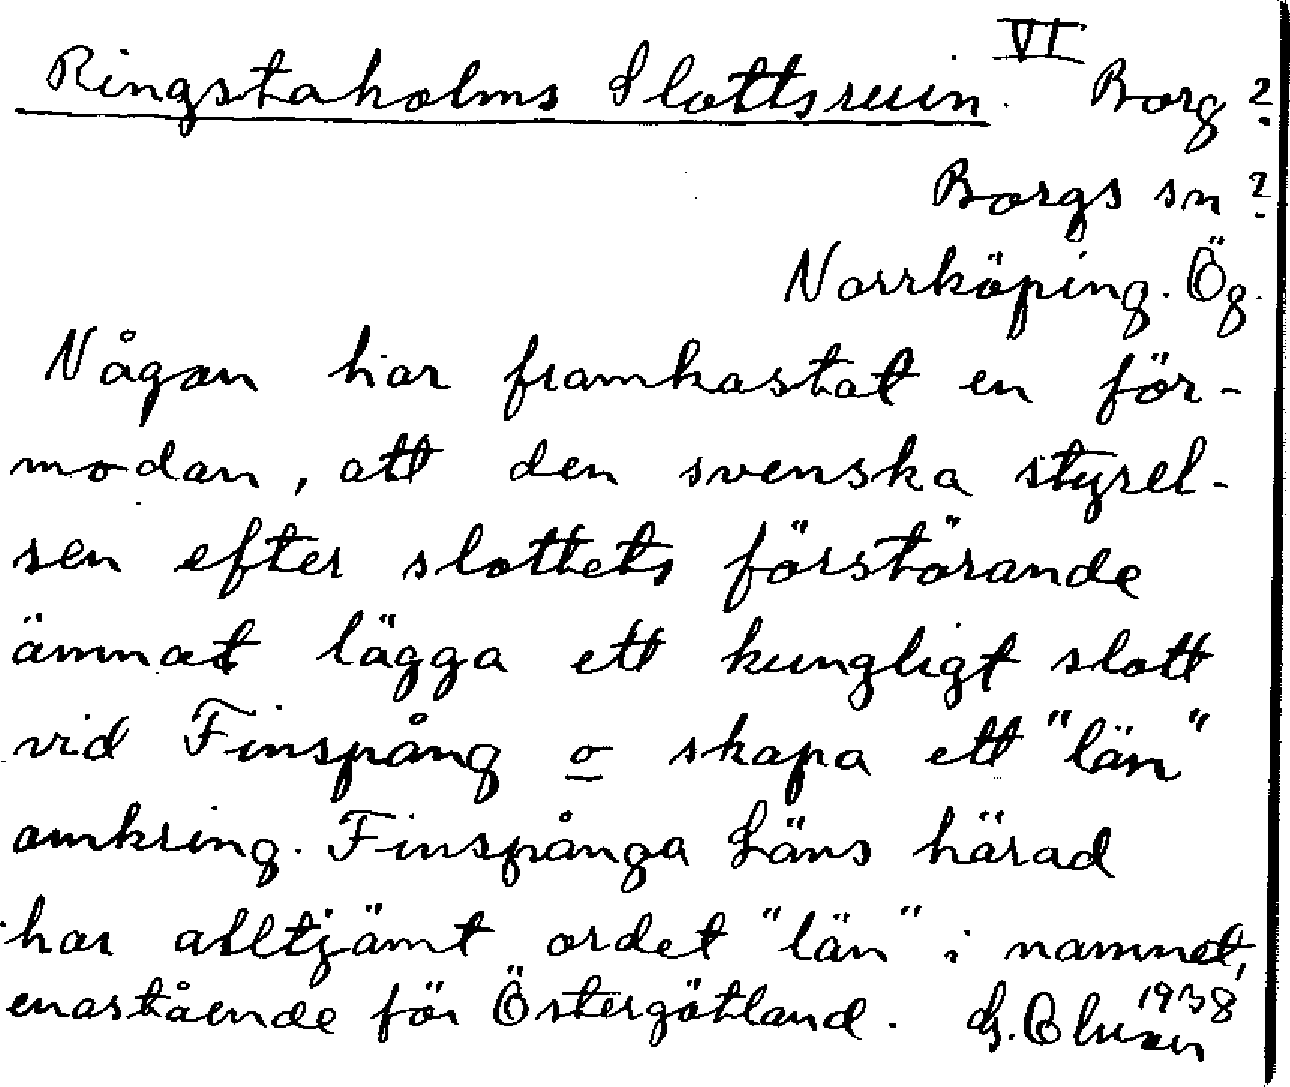 VI
Ringstaholms Slottsruin. Borg?
Borgs sn?
Norrköping. Ög.
Någon har framkastat en för-
modan, att den svenska styrel-
sen efter slottets förstörande
ämnat lägga ett kungligt slott
vid Finspång o skapa ett "län"
omkring. Finspånga Läns härad
har alltjämt ordet "län" i namnet,
enastående för Östergötland. 1938